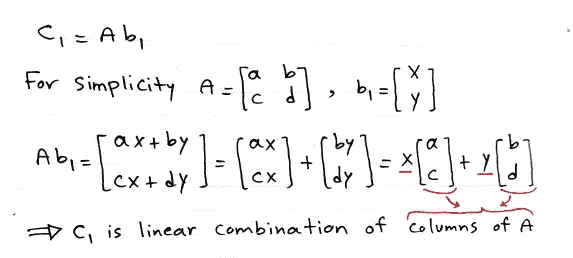 C₁ = Ab₁
For Simplicity A = [a b; c d] , b₁ = [x; y]
Ab₁ = [ax + by; cx + dy] = [ax; cx] + [by; dy] = x[a; c] + y[b; d]
⇒ C₁ is linear combination of columns of A